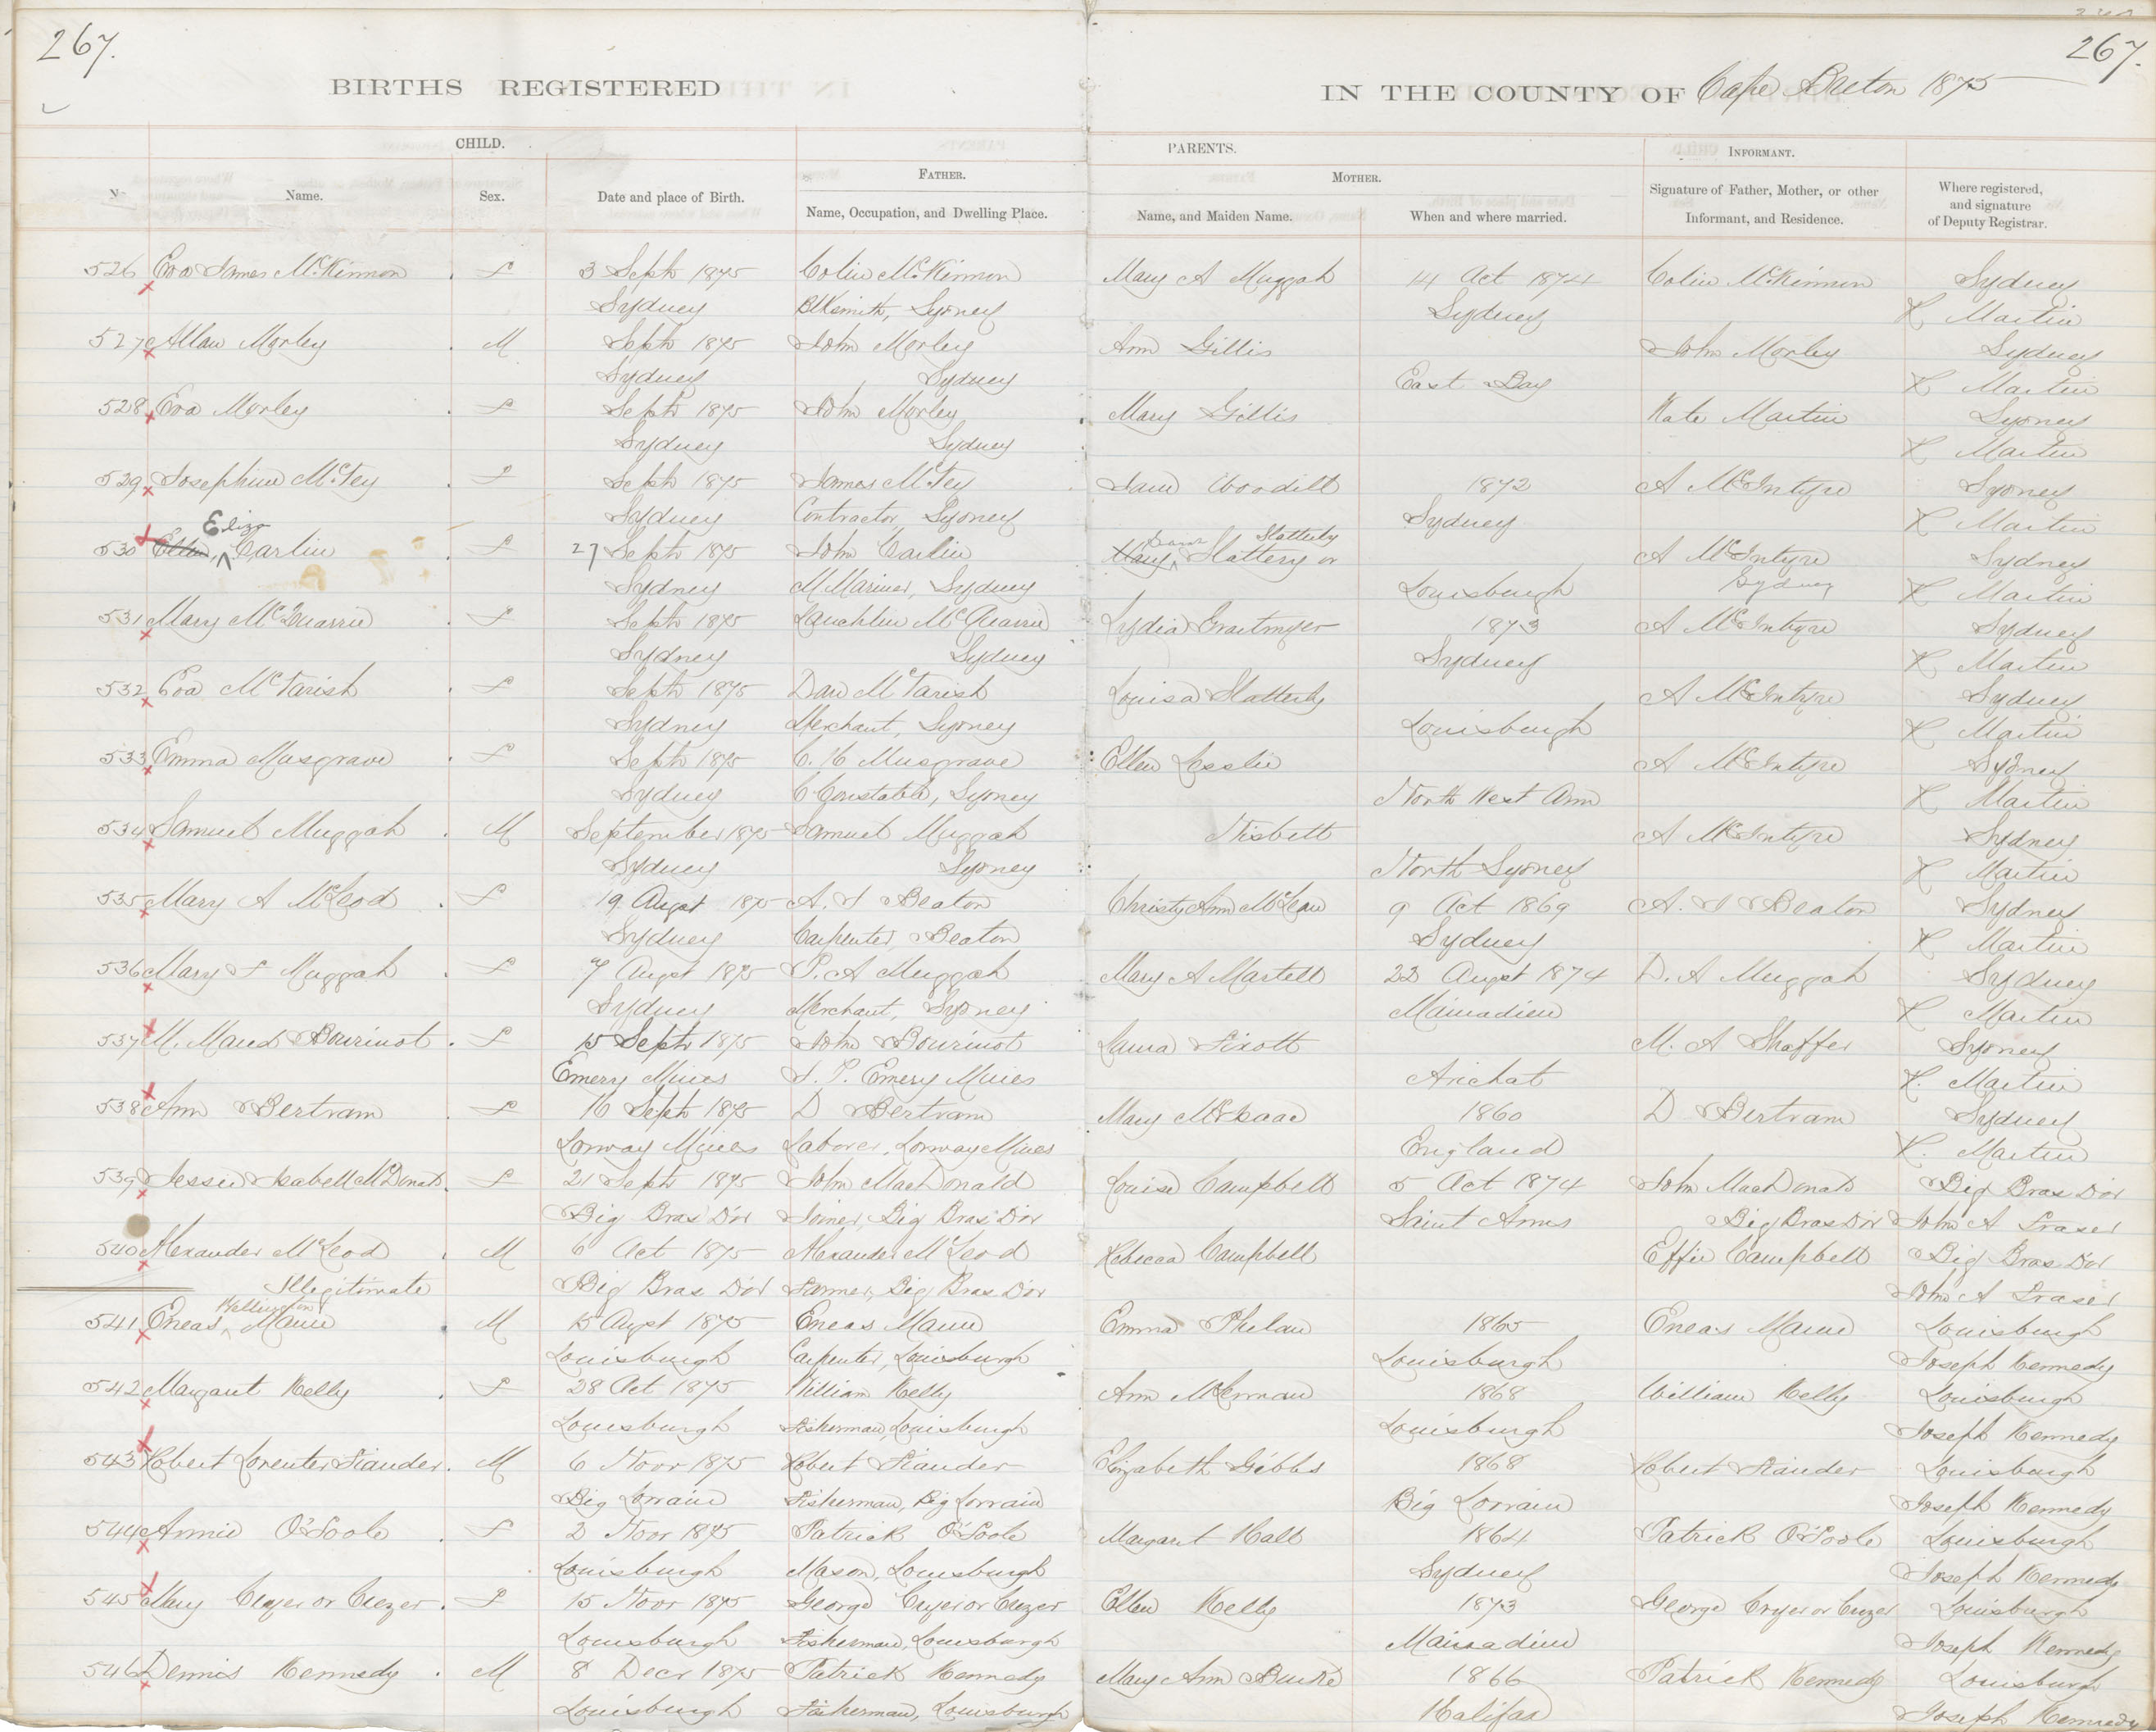 267. 267.
BIRTHS REGISTERED IN THE COUNTY OF Cape Breton 1875
CHILD. PARENTS. INFORMANT.
FATHER. MOTHER.
No Name. Sex. Date and place of Birth. Name, Occupation, and Dwelling Place. Name, and Maiden Name. When and where married. Signature of Father, Mother, or other Informant, and Residence. Where registered, and signature of Deputy Registrar.
526 Eva James McKinnon F 3 Sept 1875 Colin McKinnon Mary A Muggah 14 Oct 1874 Colin McKinnon Sydney
Sydney Blksmith, Sydney Sydney K Martin
527 Allan Morley M Sept 1875 John Morley Ann Gillis John Morley Sydney
Sydney Sydney East Bay K Martin
528 Eva Morley F Sept 1875 John Morley Mary Gillis Kate Martin Sydney
Sydney Sydney K Martin
529 Josephine McFey F Sept 1875 James McFey Jane Woodill 1872 A McIntyre Sydney
Sydney Contractor, Sydney Sydney K Martin
Eliza Slatterly
530 Ellen, Carlin F 27 Sept 1875 John Carlin Mary Slattery or A McIntyre Sydney
Sydney M Mariner, Sydney Louisburgh Sydney K Martin
531 Mary McQuarrie F Sept 1875 Lauchlin McQuarrie Lydia 1873 A McIntyre Sydney
Sydney Sydney Sydney K Martin
532 Eva McTarish F Sept 1875 Dan McTarish Louisa Slatterly A McIntyre Sydney
Sydney Merchant, Sydney Louisburgh K Martin
533 Emma Musgrave F Sept 1875 C. H Musgrave Ellen Lesslie A McIntyre Sydney
Sydney C Constable, Sydney North West Arm K Martin
534 Samuel Muggah M September 1875 Samuel Muggah Nisbett A McIntyre Sydney
Sydney Sydney North Sydney K Martin
535 Mary A McLeod F 19 Augst 1875 A. J Beaton Christy Ann McLean 9 Oct 1869 A. J Beaton Sydney
Sydney Carpenter, Beaton Sydney K Martin
536 Mary F Muggah F 7 Augst 1875 D. A Muggah Mary A Martell 22 Augst 1874 D. A Muggah Sydney
Sydney Merchant, Sydney Mainadieu K Martin
537 M. Maud Bourinot F 15 Sept 1875 John Bourinot Laura Fixott M. A Shaffer Sydney
Emery Mines J. P. Emery Mines Arichat K. Martin
538 Ann Bertram F 16 Sept 1875 D Bertram Mary McIsaac 1860 D Bertram Sydney
Lorway Mines Laborer, Lorway Mines England K. Martin
539 Jessie Isabell McDonald F 21 Sept 1875 John MacDonald Louise Campbell 5 Oct 1874 John MacDonald Big Bras D'or
Big Bras D'or Joiner, Big Bras D'or Saint Anns Big Bras D'or John A Fraser
540 Alexander McLeod M 6 Oct 1875 Alexander McLeod Rebecca Campbell Effie Campbell Big Bras D'or
Illegitimate Big Bras D'or Farmer, Big Bras D'or John A Fraser
Wellington
541 Eneas, Mann M 15 Augst 1875 Eneas Mann Emma Phelan 1865 Eneas Mann Louisburgh
Louisburgh Carpenter, Louisburgh Louisburgh Joseph Kennedy
542 Margaret Kelly F 28 Oct 1875 William Kelly Ann McLernan 1868 William Kelly Louisburgh
Louisburgh Fisherman, Louisburgh Louisburgh Joseph Kennedy
543 Robert Fiander M 6 Novr 1875 Robert Fiander Elizabeth Gibbs 1868 Robert Fiander Louisburgh
Big Lorrain Fisherman, Big Lorrain Big Lorrain Joseph Kennedy
544 Annie O'Toole F 2 Novr 1875 Patrick O'Toole Margaret Hall 1864 Patrick O'Toole Louisburgh
Louisburgh Mason, Louisburgh Sydney Joseph Kennedy
545 Mary Cryer or Crezer F 15 Novr 1875 George Cryer or Crezer Ellen Kelly 1873 George Cryer or Crezer Louisburgh
Louisburgh Fisherman, Louisburgh Mainadieu Joseph Kennedy
546 Dennis Kennedy M 8 Decr 1875 Patrick Kennedy Mary Ann Burke 1866 Patrick Kennedy Louisburgh
Louisburgh Fisherman, Louisburgh Halifax Joseph Kennedy